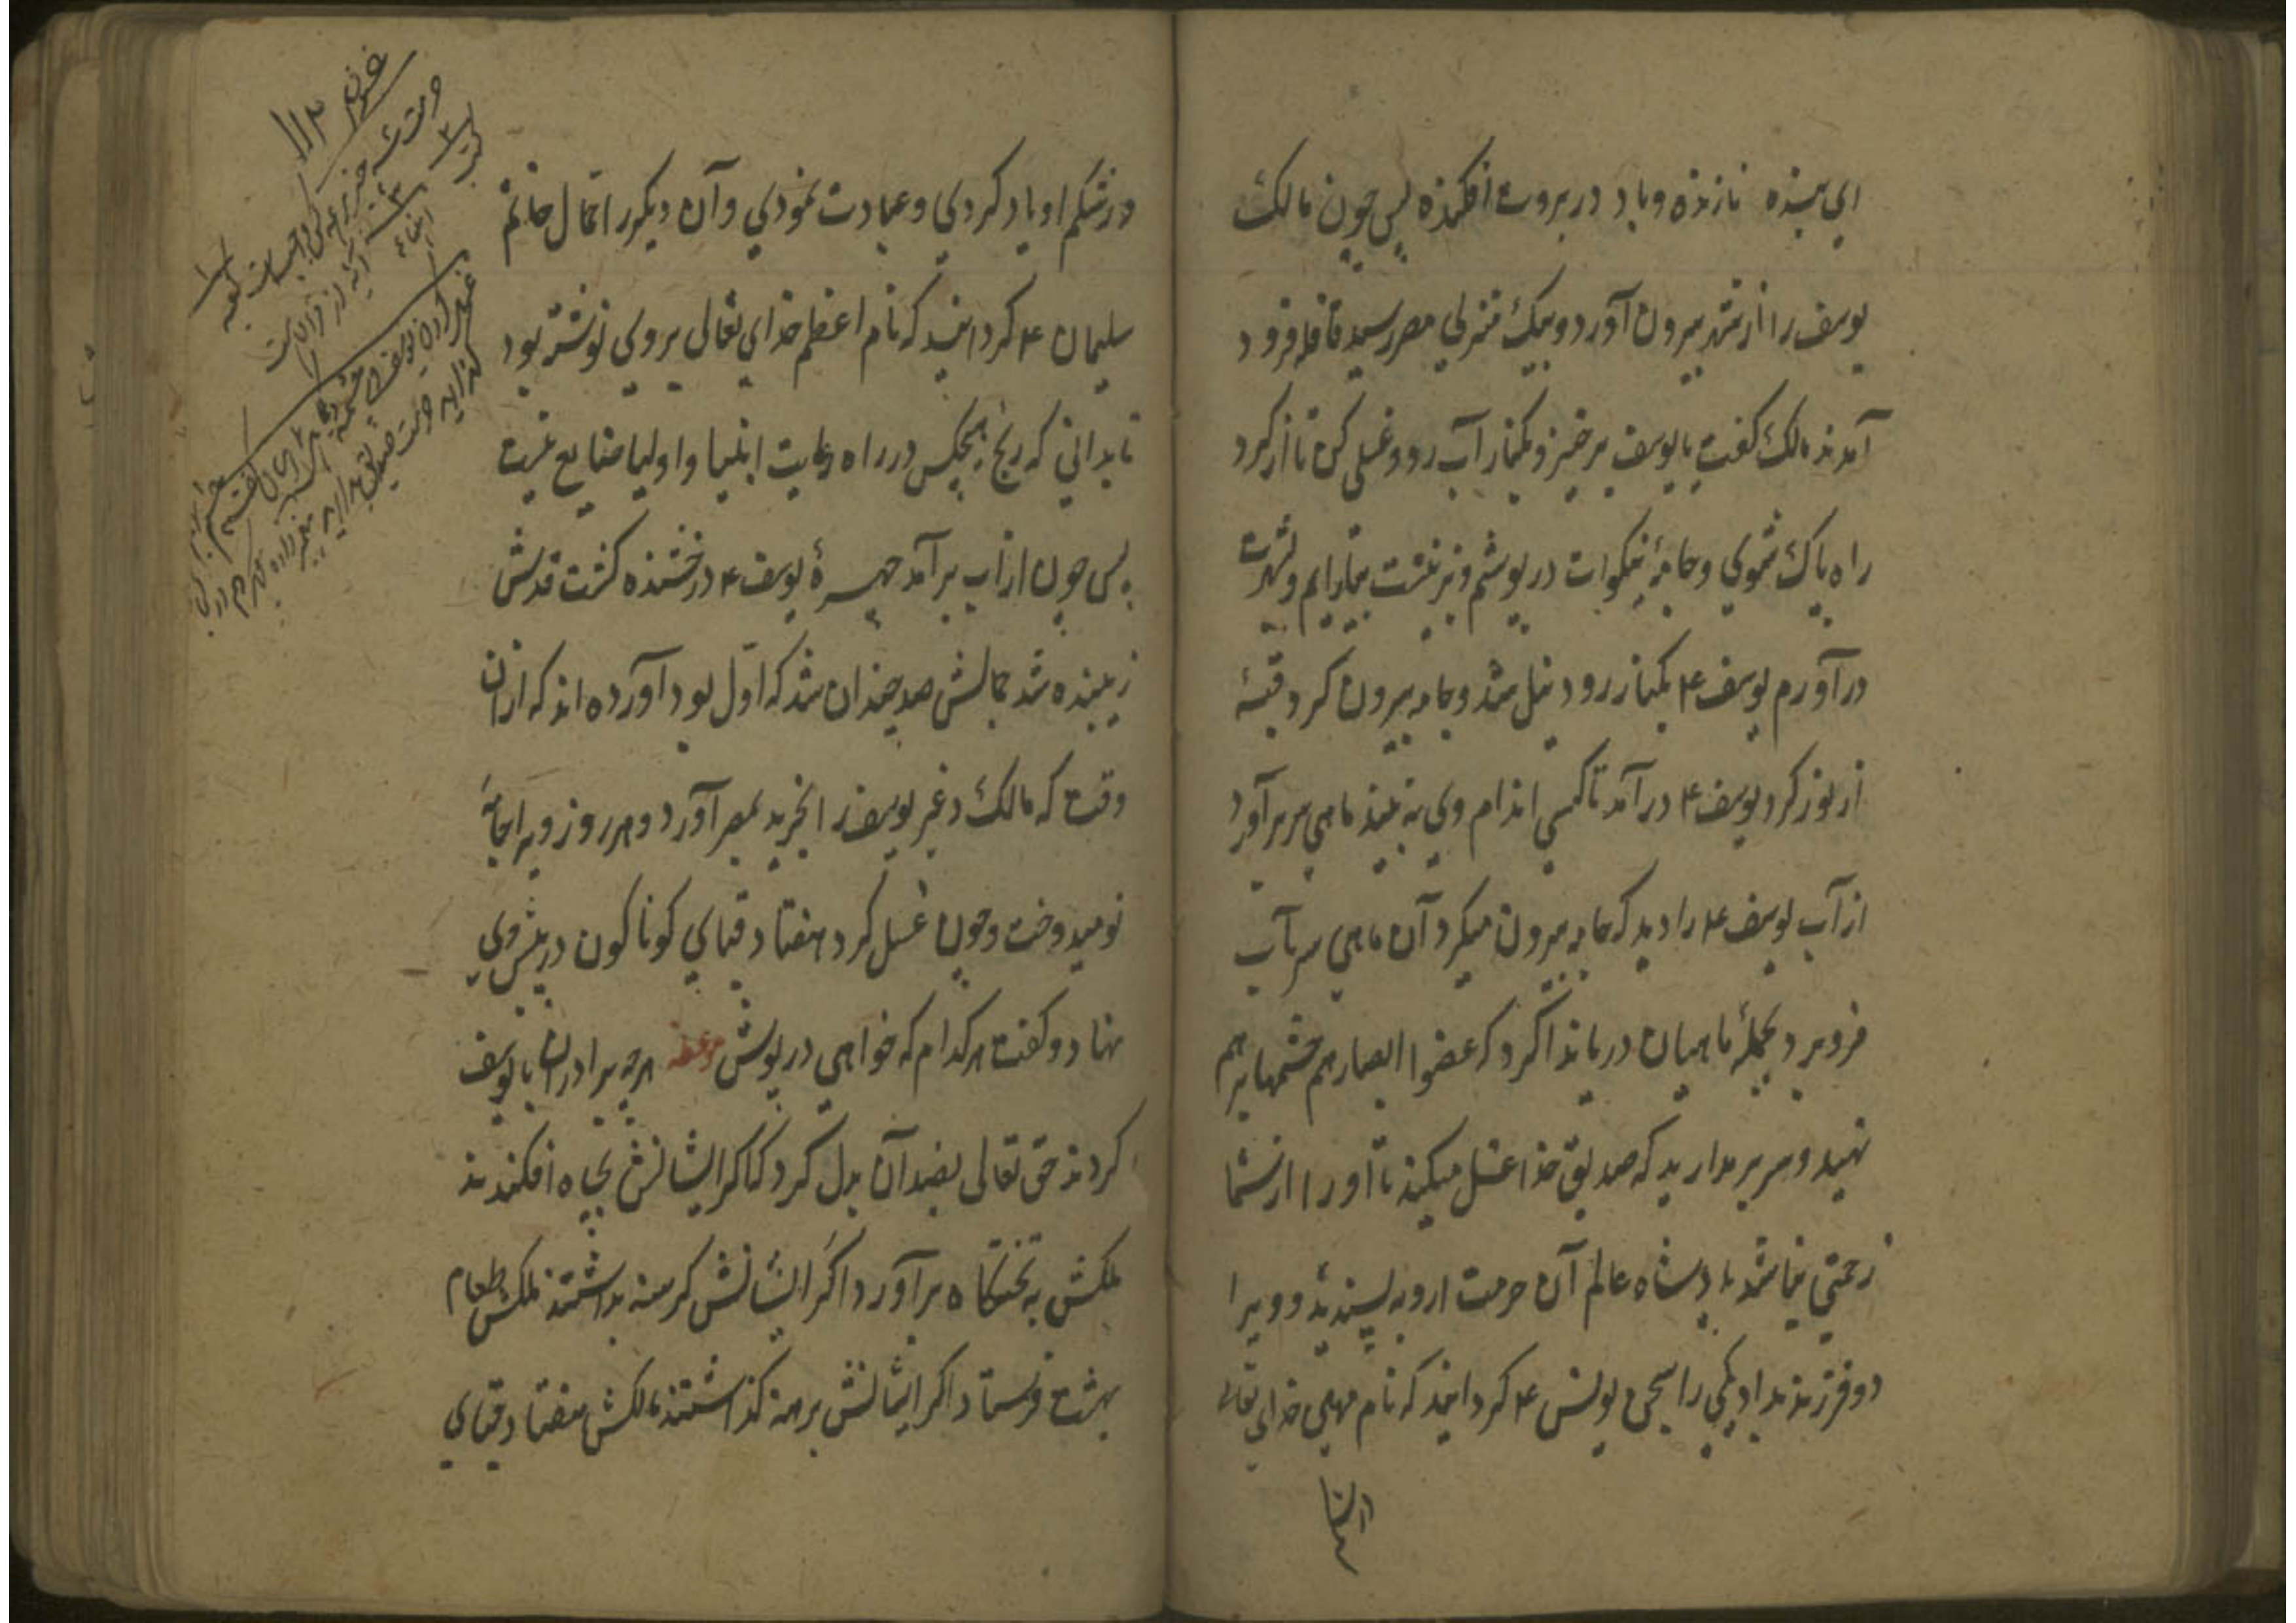 ای بنده نازنده و باد در بروت افکنده پس چون مالک
یوسف را از شهر بیرون آورد و بیک منزلی مصر رسید قافله فرود
آمدند مالک گفت یا یوسف برخیز و بکنار آب رو و غسلی کن تا از کرد
راه پاک شوی و جامهٔ نیکوات در پوشم و نیز بیارایم و بشهرت
درآورم یوسف ۴ بکنار رود نیل شد و جامه بیرون کرد قبهٔ
از نور کرد یوسف ۴ درآمد تا کسی اندام وی نه بیند ماهی سر برآورد
از آب یوسف ۴ را دید که جامه بیرون میکرد آن ماهی سر بآب
فرو برد بجملهٔ ماهیان دریا ندا کرد که غضوا ابصارهم چشمها برهم
نهید و سر برمدارید که صدیق خدا غسل میکند تا او را از شما
زحمتی نباشد پادشاه عالم آن حرمت از وبه پسندید و ویرا
دو فرزند داد یکی را سجن یونس ۴ کردانید که نام مهین خدای تعالی
در شکم او یاد کردی و عبادت نمودی و آن دیکر را حمال خاتم
سلیمان ۴ کردانید که نام اعظم خدای تعالی بروی نوشته بود
تا بدانی که رنج هیچکس در راه رعایت انبیا و اولیا ضایع نیست
پس چون از آب برآمد چهرهٔ یوسف ۴ درخشنده کشت قدش
زیبنده شد جمالش صد چندان شد که اول بود آورده اند که از آن
وقت که مالک دغر یوسف را بخرید بمصر آورد و هر روز ویرا جامهٔ
نو میدوخت و چون غسل کرد هفتاد قبای کوناکون در پیش وی
نهاد و کفت هرکدام که خواهی در پوش موعظه هرچه برادران با یوسف
کردند حق تعالی بضد آن بدل کرد کاکر ایشانش بچاه افکندند
ملکش به تختکاه برآورد اکر ایشانش کرسنه بداشتند ملکش طعام
بهشت فرستاد اکر ایشانش برهنه کذاشتند مالکش هفتاد قبای